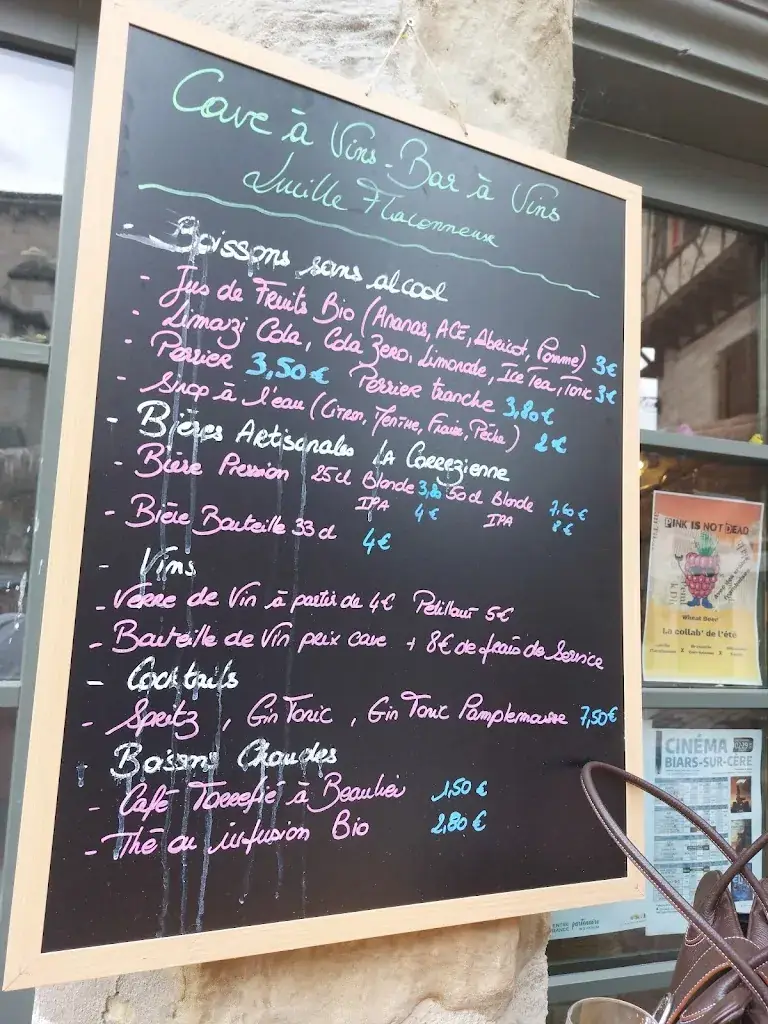 Cave à Vins - Bar à Vins
Lucille Flaconneuse
- Boissons sans alcool
- Jus de Fruits Bio (Ananas, ACE, Abricot, Pomme) 3€
- Limazi Cola, Cola Zero, Limonade, Ice Tea, Tonic 3€
- Perrier 3,50€ Perrier tranche 3,80€
- Sirop à l'eau (Citron, Menthe, Fraise, Pêche) 2€
- Bières Artisanales LA Corrézienne
- Bière Pression 25cl Blonde 3,80 50cl Blonde 7,60€
IPA 4€ IPA 8€
- Bière Bouteille 33cl 4€
- Vins
- Verre de Vin à partir de 4€ Petillant 5€
- Bouteille de Vin prix cave + 8€ de frais de Service
- Cocktails
- Spritz, Gin Tonic, Gin Tonic Pamplemousse 7,50€
- Boissons Chaudes
- Café Torrefié à Beaulieu 1,50€
- Thé ou infusion Bio 2,80€
PINK IS NOT DEAD
Wheat Beer
La collab' de l'été
CINÉMA
BIARS-SUR-CÈRE